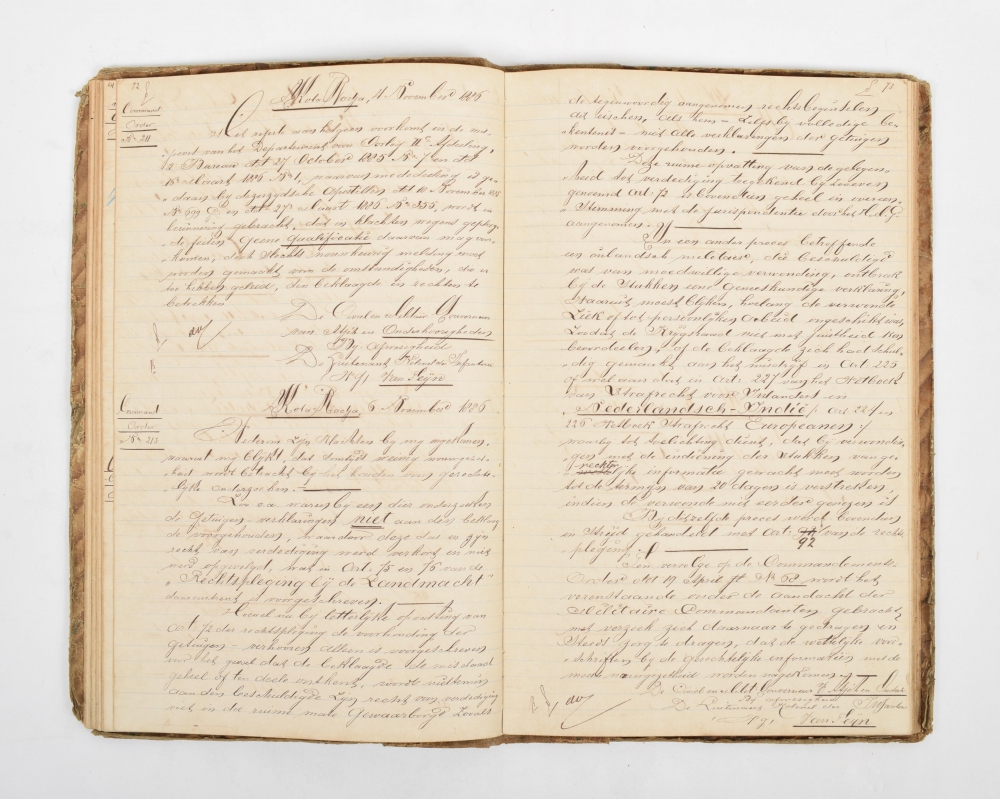 72
Kota Radja, 4 November 1886
Command
Order
No 211
IIe Afdeeling,
2e Bureau dd 27 October 1886 No 7 en dd
Maart 1886 No 1, waarvan mededeeling is ge-
No 599 en dd 27 Maart 1886 No 255, wordt in
herinnering gebracht, dat in klachten wegens gepleeg-
de feiten geene qualificatie daarvan mag voor-
komen, doch slechts nauwkeurig melding moet
worden gemaakt van de omstandigheden, die er
toe hebben geleid, den beklaagde in rechten te
betrekken.
De Civiele en Militaire Gouverneur
van Atjeh en Onderhoorigheden
Bij afwezigheid
De Luitenant Kolonel der Infanterie
Wg/ Van Teijn
Kota Radja, 6 November 1886
Command
Order
No 212
Meteren zijn klachten bij mij ingekomen,
waaruit mij blijkt, dat somtijds weinig nauwgezet-
heid wordt betracht bij het houden van gerechte-
lijke onderzoeken.
Zoo o.a. waren bij een dier onderzoeken
de getuigen-verklaringen niet aan den beklaag-
de voorgehouden, waardoor deze dus in zijn
recht van verdediging werd verkort en niet
werd opgevolgd, wat in Art: 75 en 76 van de
"Rechtspleging bij de Landmacht"
daaromtrent is voorgeschreven.
Hoewel nu bij letterlijke opvatting van
Art 72 der rechtspleging de voorhouding der
getuigen-verhooren alleen is voorgeschreven
voor het geval dat de beklaagde de misdaad
geheel of ten deele ontkent, wordt niettemin
aan den beschuldigde zijn recht van verdediging
niet in die ruime mate gewaarborgd zooals
71
de tegenwoordig aangenomen rechtsbeginselen
dat eischen, als hem - zelfs bij volledige be-
kentenis - niet alle verklaringen der getuigen
worden voorgehouden.
Die ruime opvatting van de gelegen-
heid tot verdediging toegekend bij boven
genoemd Art: 72 is bovendien geheel in overeen-
stemming met de jurisprudentie door het H.M.G.
aangenomen.
In een ander proces betreffende
een inlandsch militair, die beschuldigd
was van moedwillige verwonding, ontbrak
bij de stukken eene geneeskundige verklaring,
waaruit moest blijken, hoelang de verwonde
ziek of tot persoonlijken arbeid ongeschikt was,
zoodat de Krijgsraad niet met juistheid kon
beoordeelen, of de beklaagde zich had schul-
dig gemaakt aan het misdrijf in Art: 225
of wel aan dat in Art: 227 van het Wetboek
van Strafrecht voor Inlanders in
Nederlandsch-Indië, / Art 224 en
226 Wetboek Strafrecht Europeanen /
waarbij tot toelichting dient, dat bij verwondin-
gen met de indiening der stukken van ge-
rechtelijke informatie gewacht moet worden
tot de termijn van 20 dagen is verstreken,
indien de verwonde niet eerder genezen is.
In datzelfde proces werd bovendien
in strijd gehandeld met Art: 92 van de rechts-
pleging.
Ten vervolge op de Commandements-
order dd 19 April jl No 68 wordt het
vorenstaande onder de aandacht der
Militaire Commandanten gebracht
met verzoek zich daarnaar te gedragen en
steeds zorg te dragen, dat de wettelijke voor-
schriften bij de gerechtelijke informatien met de
meeste nauwgezetheid worden nagekomen.
De Civiel en Milit: Gouverneur v. Atjeh en Onderh:
Bij afwezigheid
De Luitenant Kolonel der Infanterie
Wg/ Van Teijn